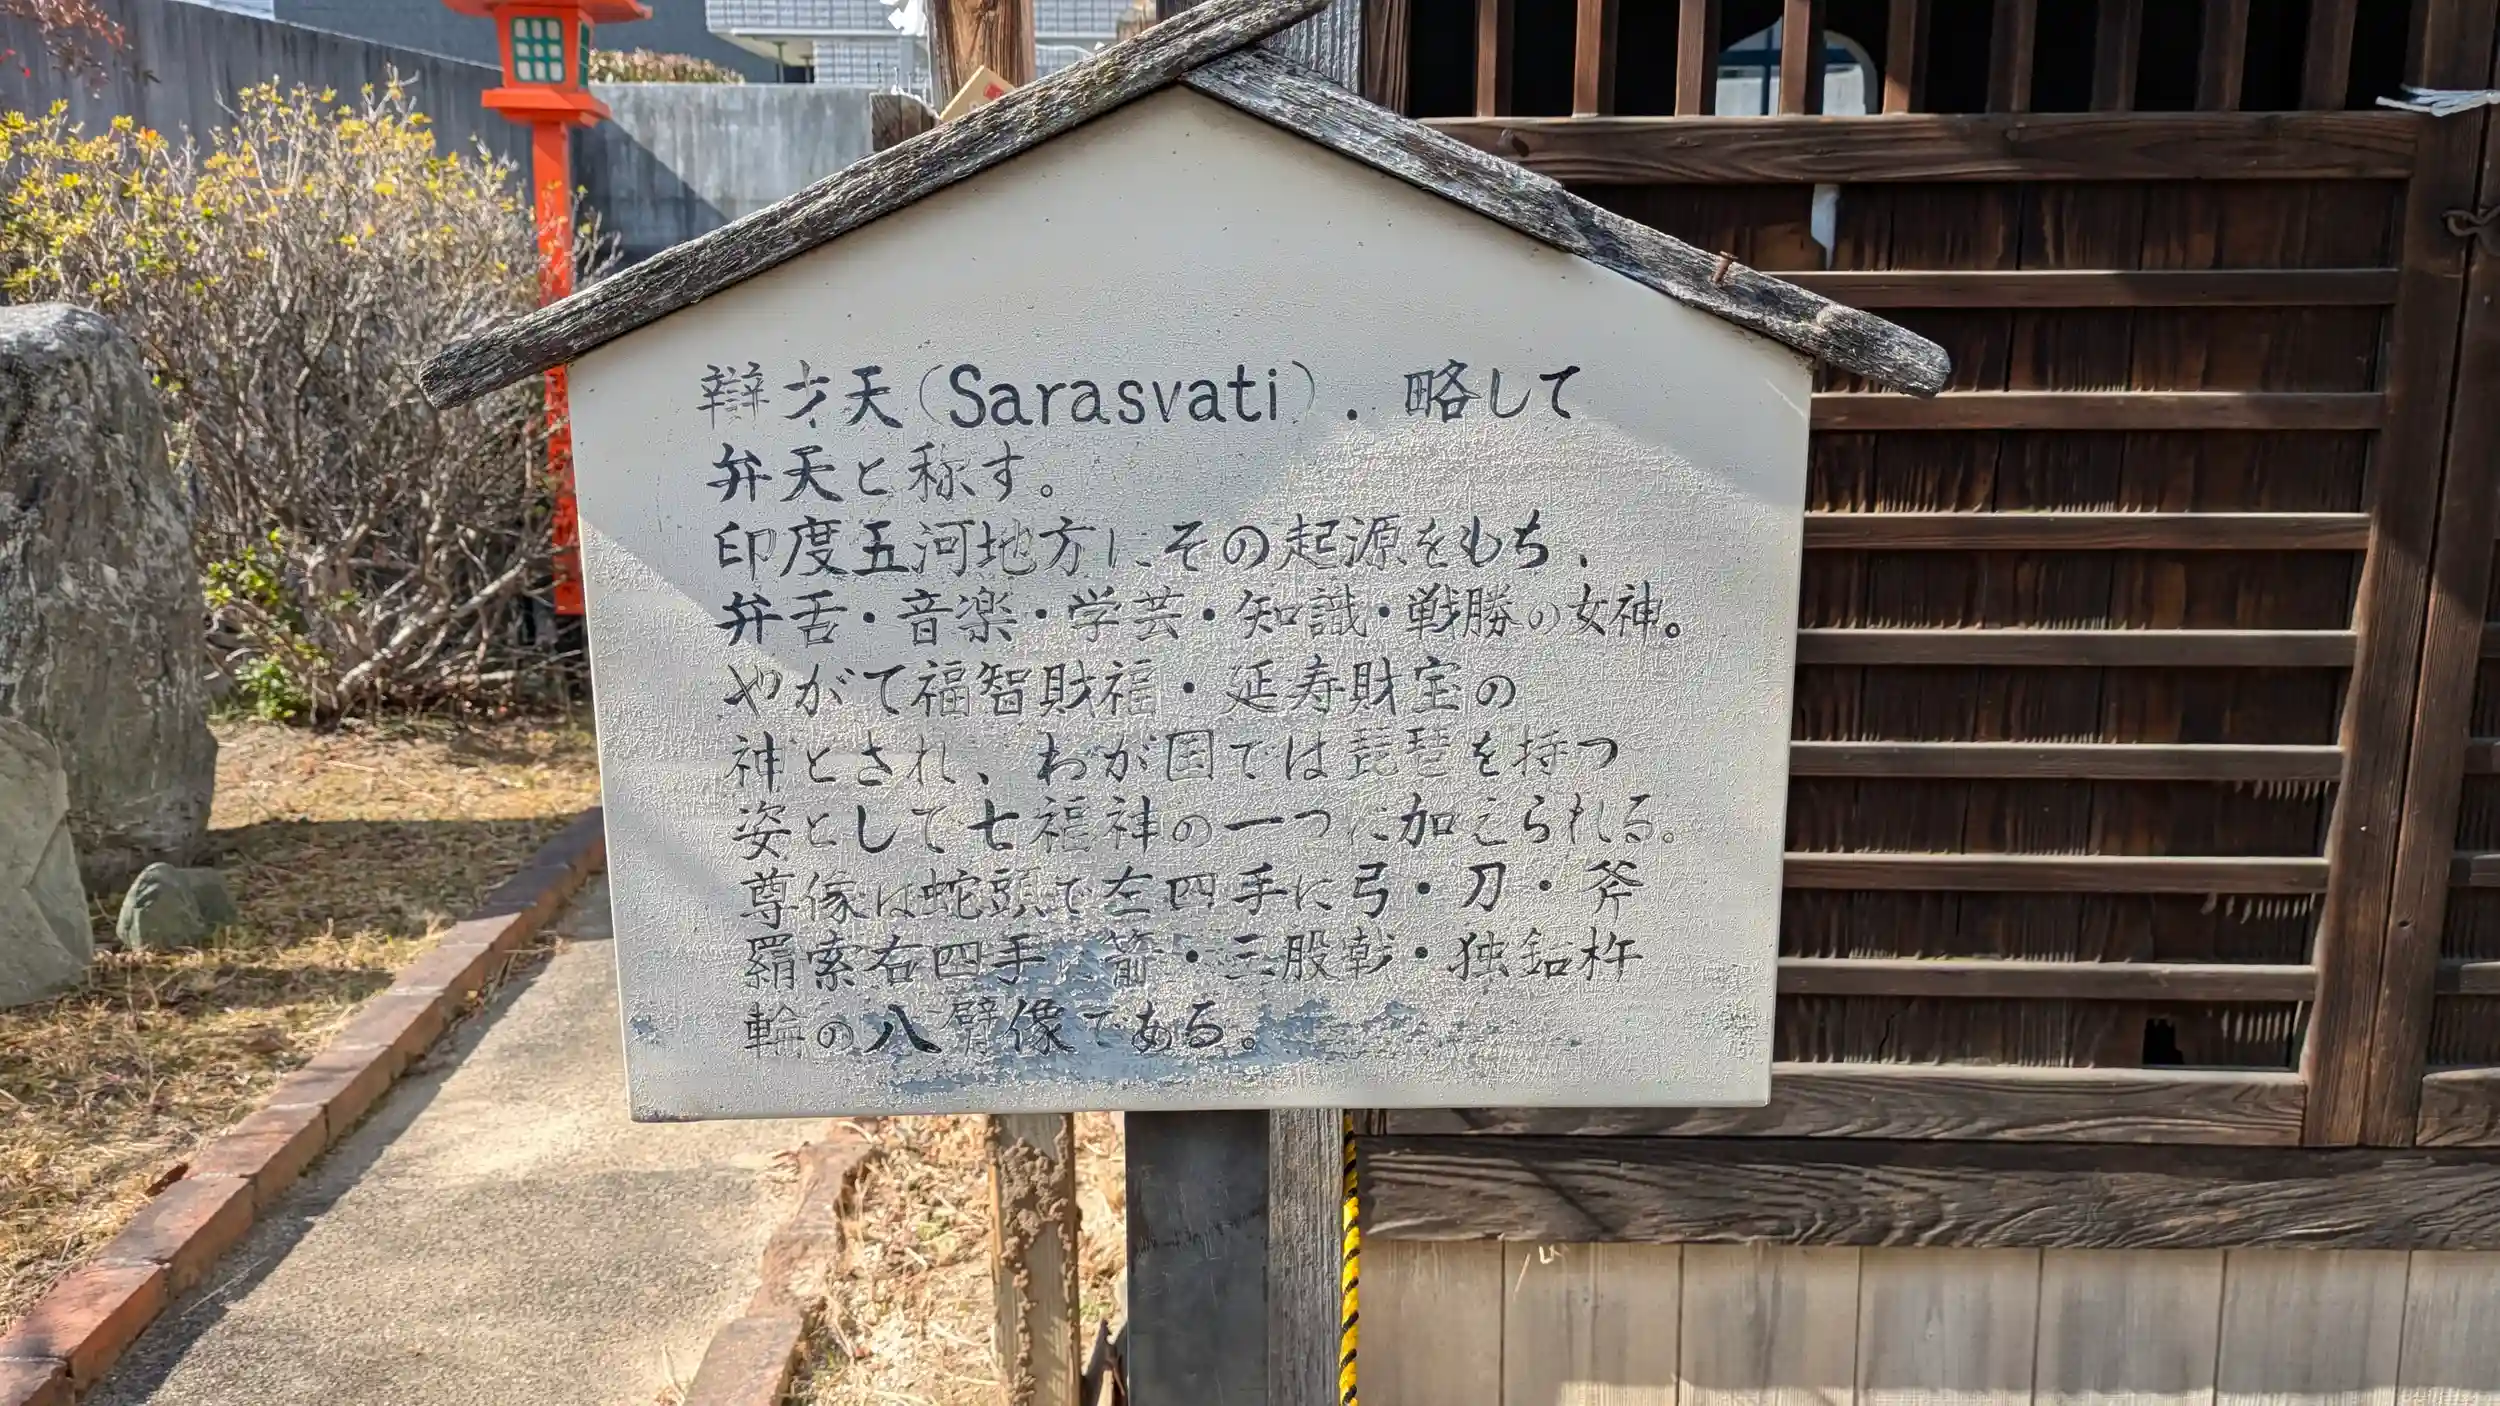 辯才天(Sarasvati). 略して
弁天と称す。
印度五河地方にその起源をもち、
弁舌・音楽・学芸・知識・戦勝の女神。
やがて福智財福・延寿財宝の
神とされ、わが国では琵琶を持つ
姿として七福神の一つに加えられる。
尊像は蛇頭で左四手に弓・刀・斧
羂索右四手 箭・三股戟・独鈷杵
輪の八臂像である。